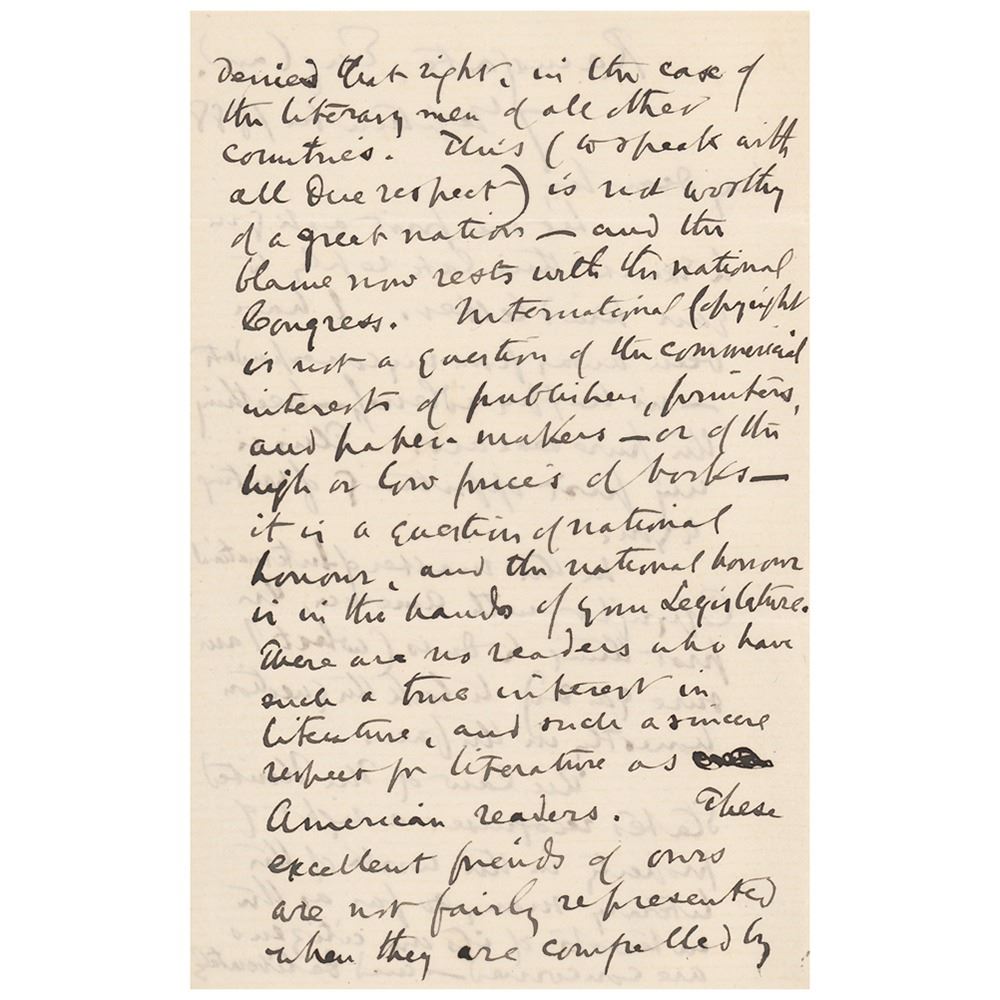 denied that right, in the case of
the literary men of all other
countries. This (to speak with
all due respect) is not worthy
of a great nation — and the
blame now rests with the national
Congress. International Copyright
is not a question of the commercial
interests of publishers, printers,
and paper-makers — or of the
high or low prices of books —
it is a question of national
honour, and the national honour
is in the hands of your Legislature.
There are no readers who have
such a true interest in
literature, and such a sincere
respect for literature as
American readers. These
excellent friends of ours
are not fairly represented
when they are compelled by